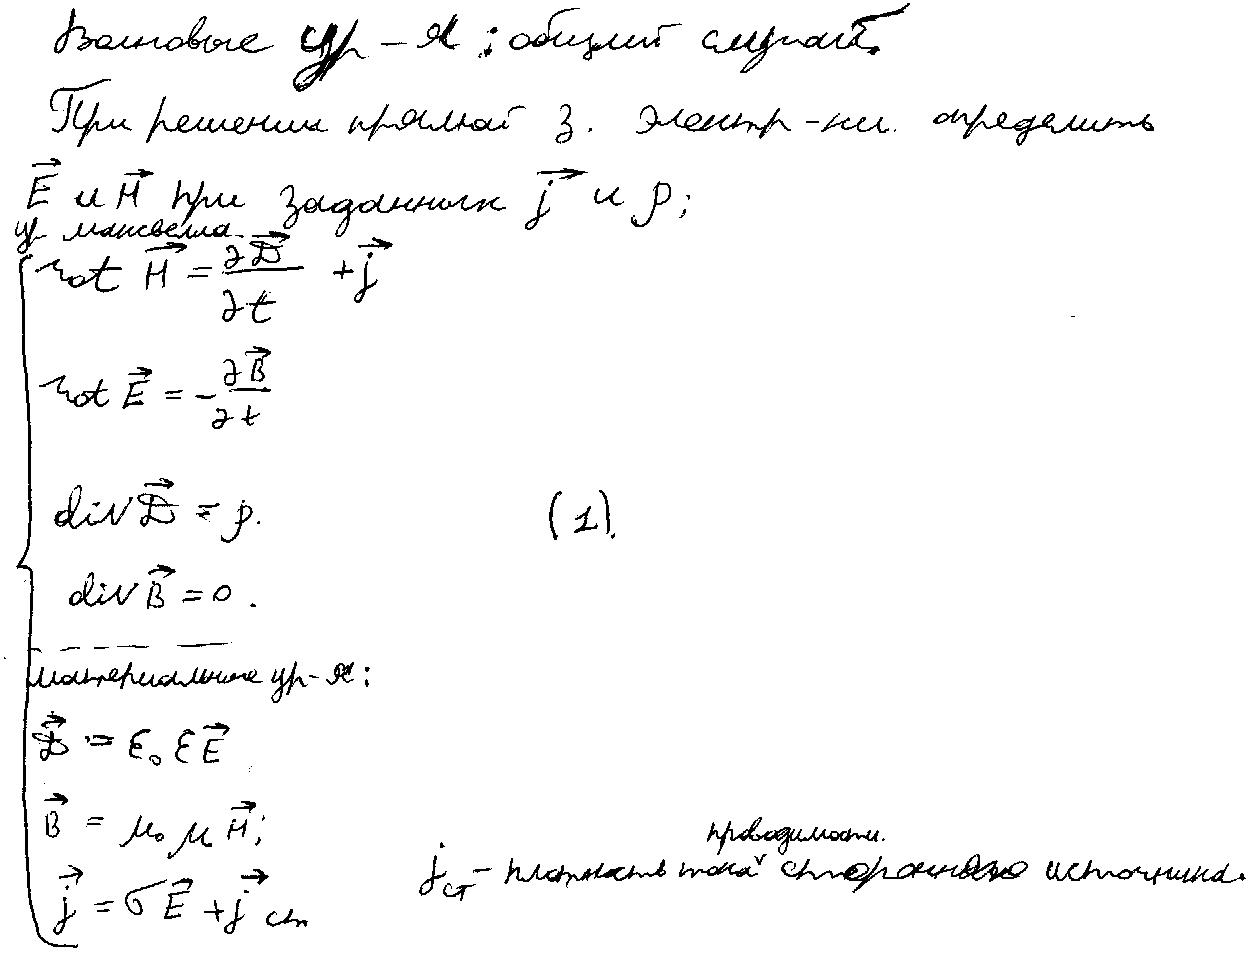 Волновые ур-я: общий случай.
При решении прямой з. электр-ки. определить
E⃗ и H⃗ при заданных j⃗ и ρ;
ур. максвелла
rot H⃗ = ∂D⃗/∂t + j⃗
rot E⃗ = -∂B⃗/∂t
div D⃗ = ρ.
(1).
div B⃗ = 0.
материальные ур-я:
D⃗ = ε₀ εE⃗
B⃗ = μ₀ μ H⃗;
j⃗ = σE⃗ + j⃗ ст
проводимости.
j ст - плотность тока ᵛ стороннего источника.